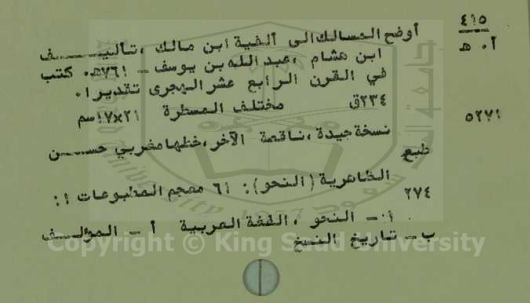 ٤١٥
أ٠ هـ
أوضح المسالك الى ألفية ابن مالك ، تأليف
ابن هشام ، عبد الله بن يوسف - ٧٦١هـ. كتب
في القرن الرابع عشر الهجرى تقديرا.
٢٣٤ق مختلف المسطرة ٢١×١٧سم
٥٢٧١
نسخة جيدة ، ناقصة الآخر ، خطها مغربي حسن
طبع
الظاهرية (النحو): ٦١ معجم المطبوعات ١:
٢٧٤
١- النحو ، اللغة العربية أ - المؤلف
ب - تاريخ النسخ
Copyright © King Saud University